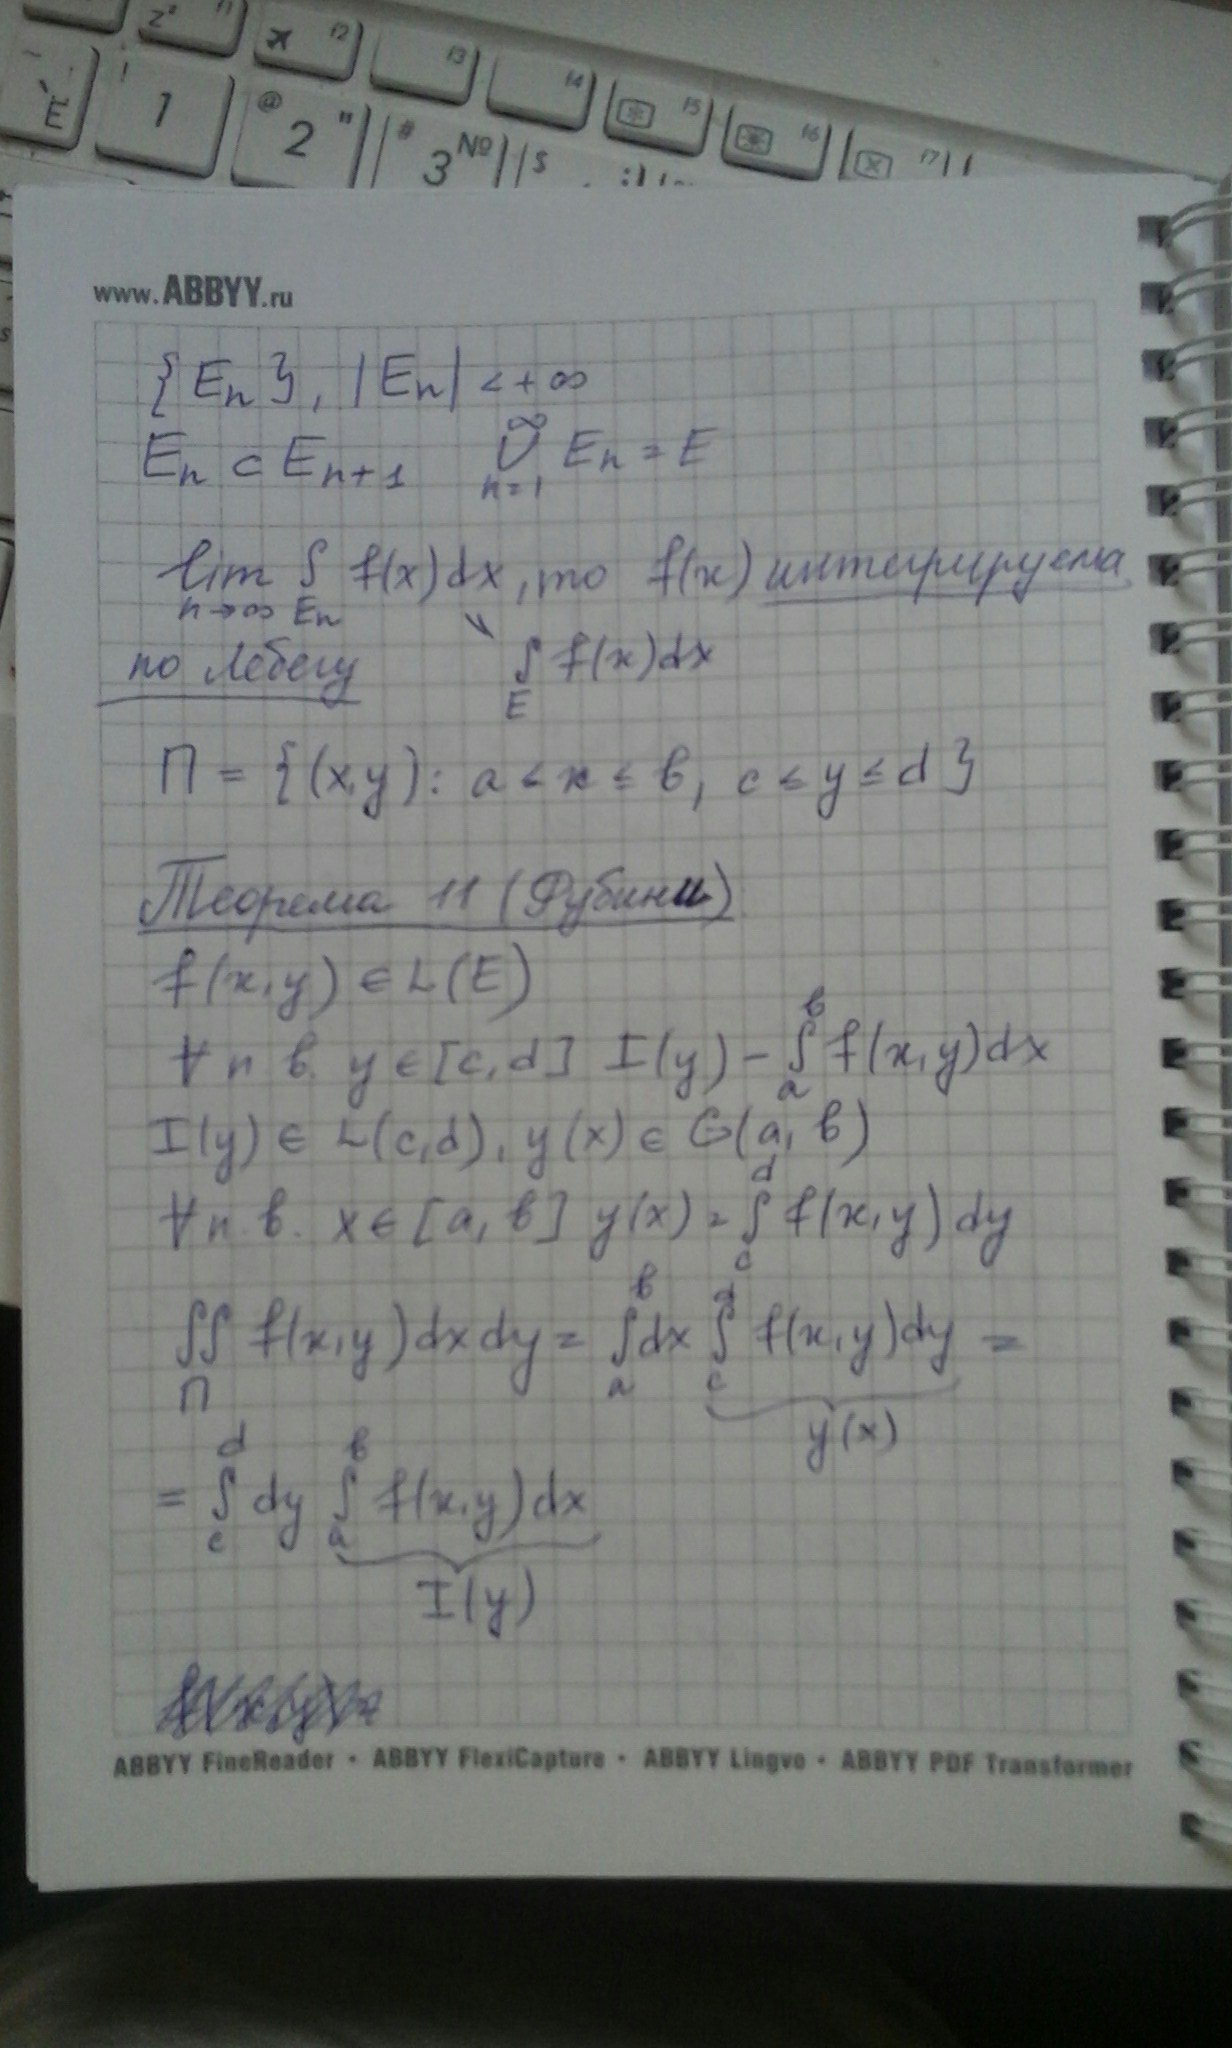 z² 11 * 12 13 14 15 16 17
Ё ! 1 @ 2 " # 3 № $
www.ABBYY.ru
{Eₙ}, |Eₙ| < +∞
Eₙ ⊂ Eₙ₊₁ ∞ ∪ n=1 Eₙ = E
lim n→∞ ∫ Eₙ f(x)dx, то f(x) интегрируема
по Лебегу ↘ ∫ E f(x)dx
П = {(x,y): a ≤ x ≤ b, c ≤ y ≤ d}
Теорема 11 (Фубини)
f(x,y) ∈ L(E)
∀ п в. y ∈ [c,d] I(y) - ∫ₐᵇ f(x,y)dx
I(y) ∈ L(c,d), y(x) ∈ G(a,b)
∀ п. в. x ∈ [a,b] y(x) = ∫ d c f(x,y)dy
∬ П f(x,y)dxdy = ∫ b a dx ∫ d c f(x,y)dy =
y(x)
= ∫ d c dy ∫ b a f(x,y)dx
I(y)
ABBYY FineReader • ABBYY FlexiCapture • ABBYY Lingvo • ABBYY PDF Transformer